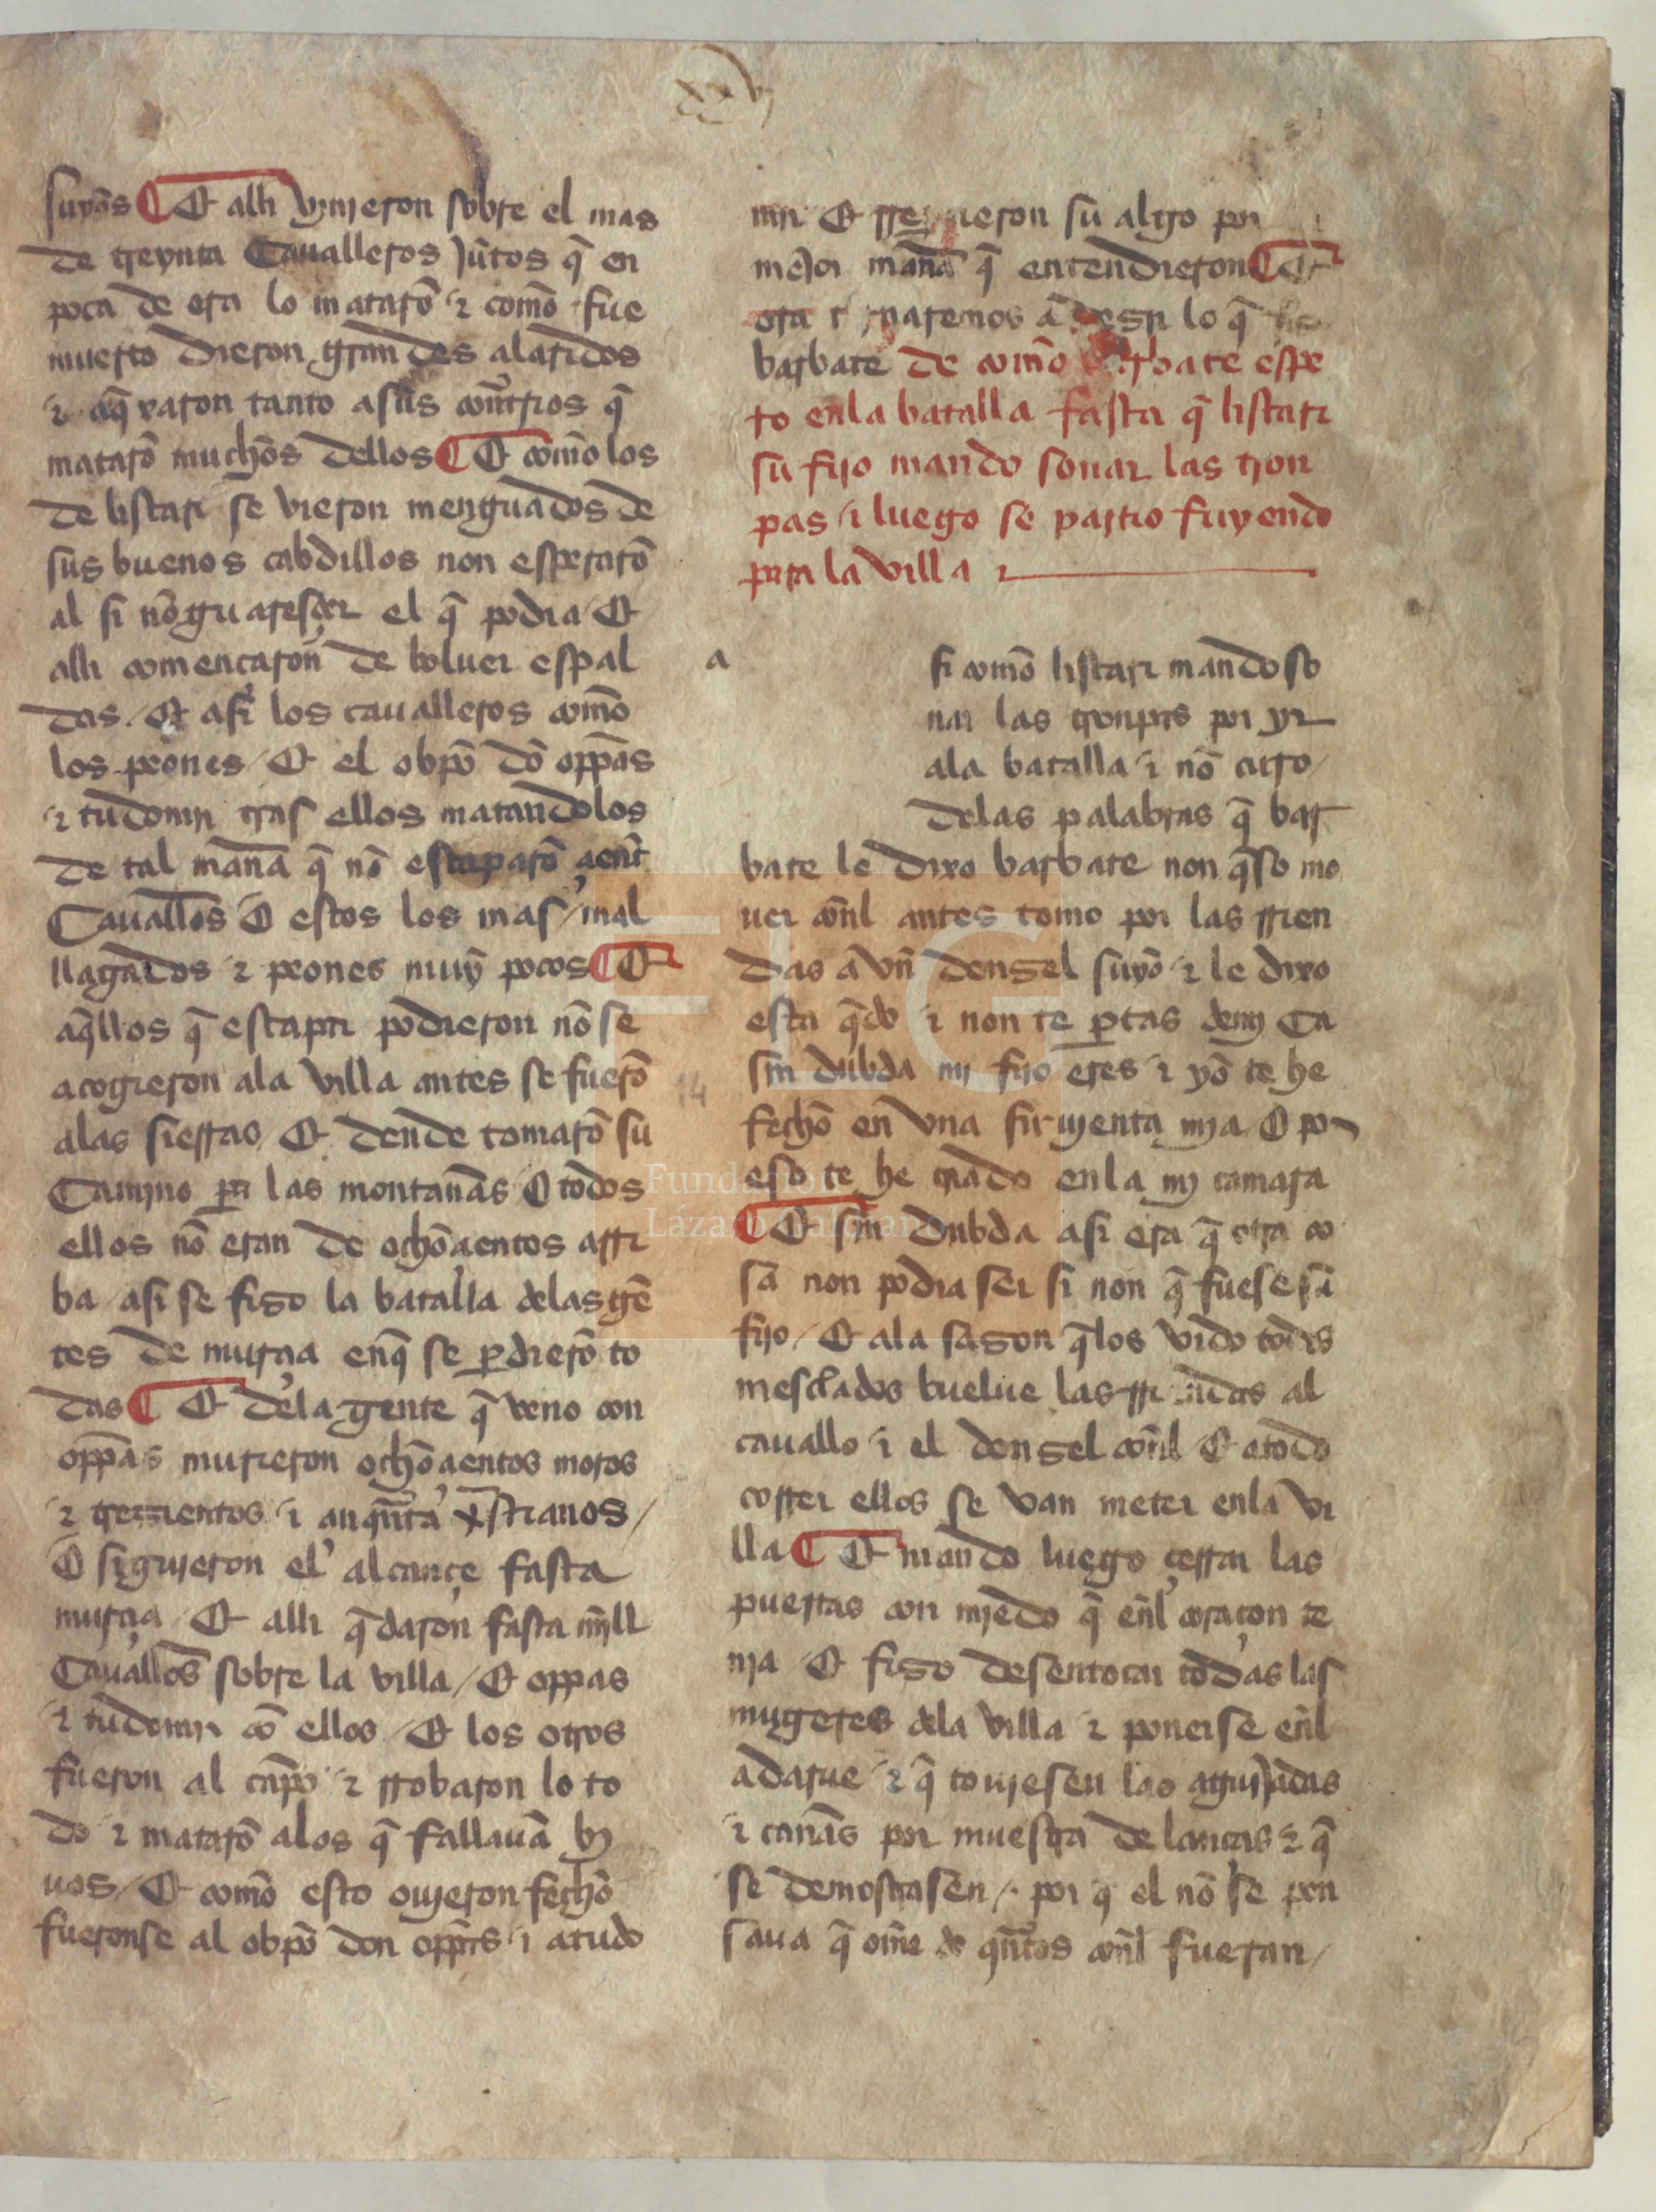 xxvj
suyos ¶ Et alli vinjeron sobre el mas
de treynta Caualleros jũtos q̃ en
poca de ora lo mataro᷈ ⁊ como᷈ fue
muerto dieron grandes alaridos
⁊ aq̃xaron tanto a sus cont̃rios q̃
mataro᷈ muchos dellos ¶ E como los
de listari se vieron menguados de
sus buenos cabdillos non esperaro᷈
al si no᷈ guaresçer el q̃ podia / Et
alli començaron de boluer espal
das / Et asi los caualleros como᷈
los peones / Et el obp̃o do᷈ oppas
⁊ tudomir tras ellos matandolos
de tal man̄a q̃ no᷈ escaparo᷈ çient
Cauall̃os E estos los mas mal
llagados ⁊ peones muy pocos ¶ Et
aq̃llos q̃ escapar podieron no᷈ se
acogieron ala villa antes se fuero᷈
alas sierras Et dende tomaro᷈ su
Camjno p̃a las montan̄as E todos
ellos no᷈ eran de ochoçientos arri
ba / asi se fizo la batalla delas ge᷈
tes de murçia enq̃ se p̱diero᷈ to
das ¶ Et dela gente q̃ veno con
opp̃as murieron ochoçientos moros
⁊ trezientos ⁊ çinq̃nta xp̃stianos /
E siguieron el alcançe fasta
murçia / Et alli q̃daron fasta mjll
Cauall̃os sobre la villa / Et oppas
⁊ tudomjr co᷈ ellos / Et los otros
fueron al canpo ⁊ rrobaron lo to
do ⁊ mataro᷈ alos q̃ fallaua᷈ bj
uos / Et como᷈ esto ouieron fecho
fueronse al obp̃o don opp̃as ⁊ a tudo
mir Et su algo por
mejor man̄a q̃ entendieron ¶ Et
ora a dezir lo q̃
barbate de como᷈ barbate espe
ro enla batalla fasta q̃ listari
su fijo mando sonar las tron
pas ⁊ luego se partio fuyendo
para la villa ⁊
a
si como᷈ listari mando so
nar las tronpas por yr
ala batalla ⁊ no᷈ curo /
delas palabras q̃ bar
bate le dixo barbate non q̃so mo
uer con̄l antes tomo por las rrien
das a vn̄ donzel suyo ⁊ le dixo
esta q̃do ⁊ non te p̱tas demj Ca
sin dubda mj fijo eres ⁊ yo te he
fecho en vna siruienta mja E por
eso te he criado enla mj camara
¶ Et sin dubda asi era q̃ otra co
sa non podia ser si non q̃ fuese su
fijo / Et ala sazon q̃ los vido todos
mesclados buelue las rriendas al
cauallo ⁊ el donzel con̄l Et a todo
correr ellos se van meter enla vi
lla ¶ Et mando luego çerrar las
puertas con mjedo q̃ en̄l coraçon te
nja / Et fizo desentocar todas las
mugeres dela villa ⁊ ponerse en̄l
adarue ⁊ q̃ touiesen las aguijadas
⁊ can̄as por muestra de lanças ⁊ q̃
se demostrasen / por q̃ el no᷈ se pen
saua q̃ om̃e de q̃ntos con̄l fueran /
14
FLG
Fundación
Lázaro Galdiano